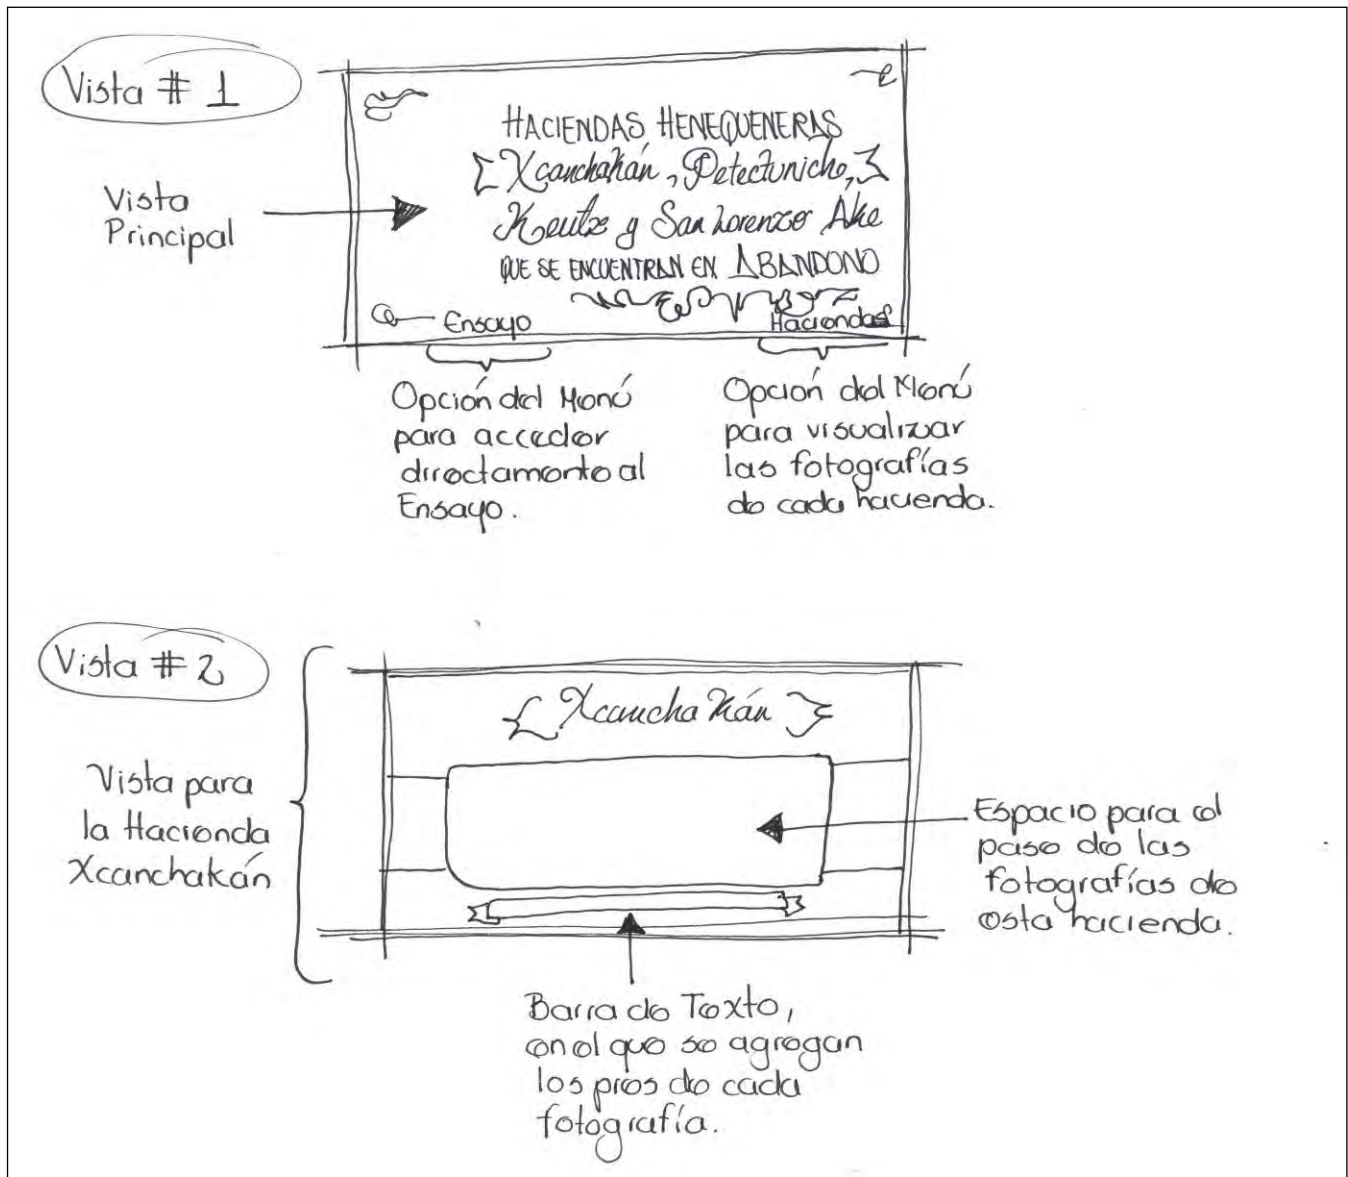 Vista # 1
Vista
Principal
HACIENDAS HENEQUENERAS
Xcanchakán, Petectunich,
Keuitze y San Lorenzo Ake
QUE SE ENCUENTRAN EN ABANDONO
Ensayo
Haciendas
Opción del Menú
para acceder
directamente al
Ensayo.
Opción del Menú
para visualizar
las fotografías
de cada hacienda.
Vista # 2
Vista para
la Hacienda
Xcanchakán
Xcanchakán
Espacio para el
paso de las
fotografías de
esta hacienda.
Barra de Texto,
en el que se agregan
los pies de cada
fotografía.